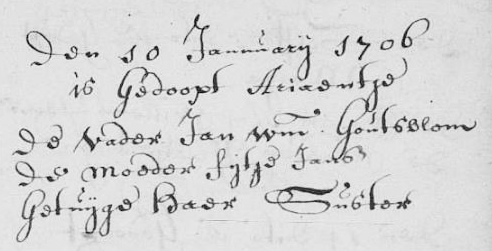 Den 10 Januuarij 1706
is Gedoopt Ariaentje
de vader Jan wm Goutsblom
de moeder sijtje Jans
Getuijge haer Suster